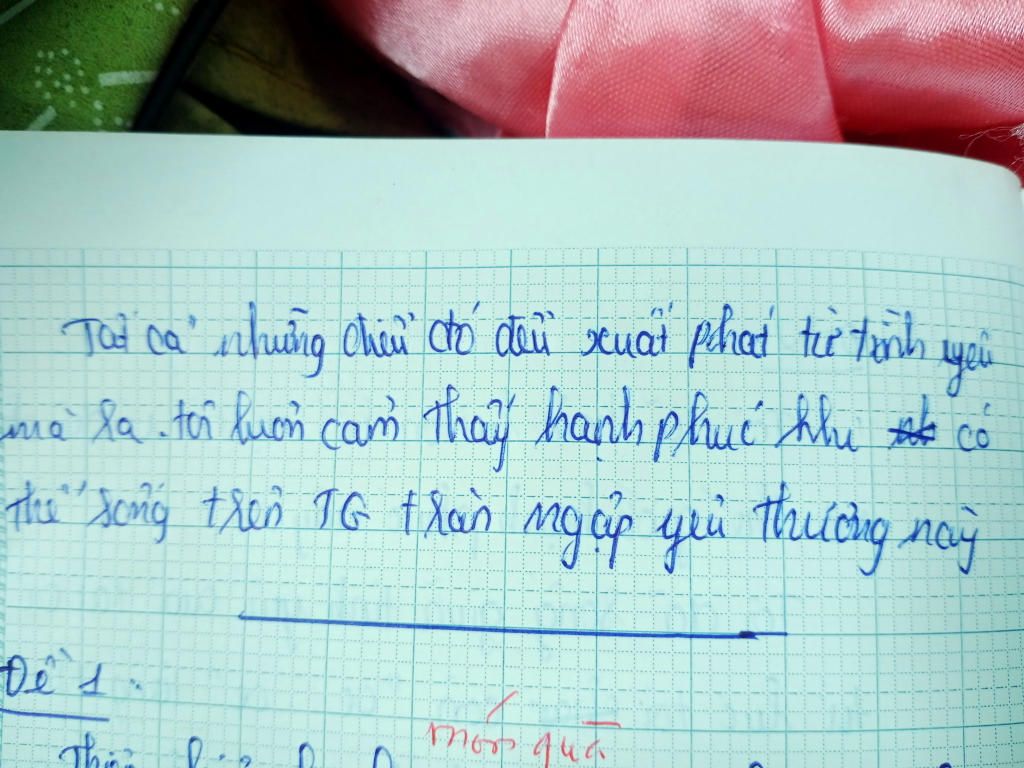 Tất cả những điều đó đều xuất phát từ tình yêu
mà ra. tôi luôn cảm thấy hạnh phúc khi có
thể sống trên TG tràn ngập yêu thương này
Đề 1:
món quà